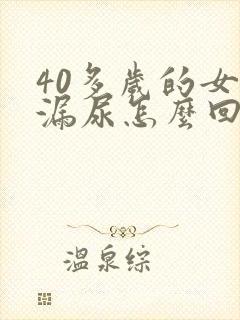 40多歲的女
漏尿怎麼回
溫泉綜